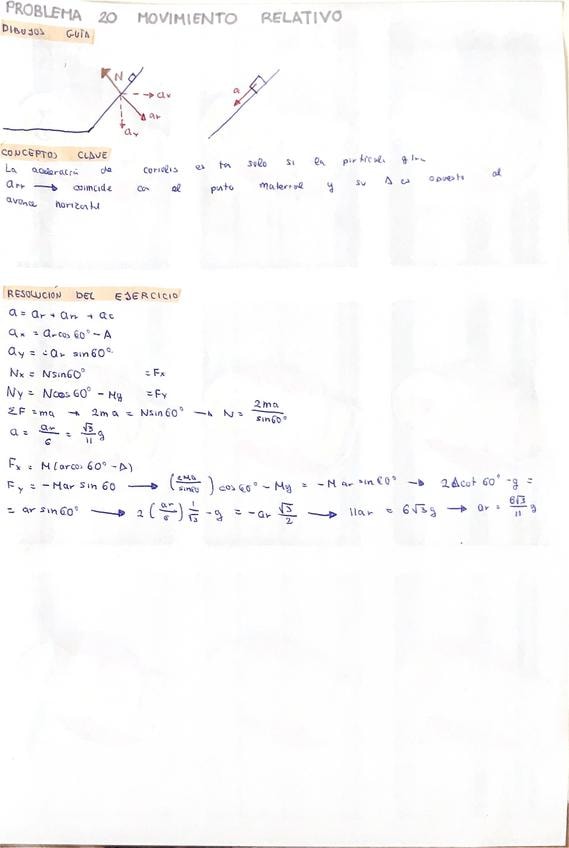 PROBLEMA 20 MOVIMIENTO RELATIVO
DIBUJOS GUÍA
N
ax
ar
ay
a
CONCEPTOS CLAVE
La aceleración de coriolis es tan solo si la partícula gira
arr → coincide con el punto material y su Δ es opuesto al
avance horizontal
RESOLUCIÓN DEL EJERCICIO
a = ar + arr + ac
ax = ar cos 60° - A
ay = - ar sin 60°
Nx = N sin 60° = Fx
Ny = N cos 60° - Mg = Fy
ΣF = ma → 2ma = N sin 60° → N = 2ma / sin 60°
a = ar/6 = √3/11 g
Fx = M(ar cos 60° - A)
Fy = -Mar sin 60 → (2MA/sin60) cos 60° - Mg = -Mar sin 60° → 2A cot 60° - g =
= ar sin 60° → 2 (ar/6) 1/√3 - g = -ar √3/2 → 11ar = 6√3 g → ar = 6√3/11 g